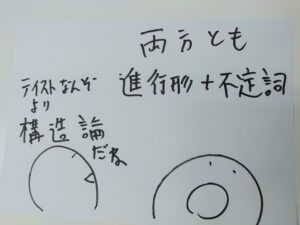 両方とも
進行形+不定詞
テイストなんぞ
より
構造論
だね